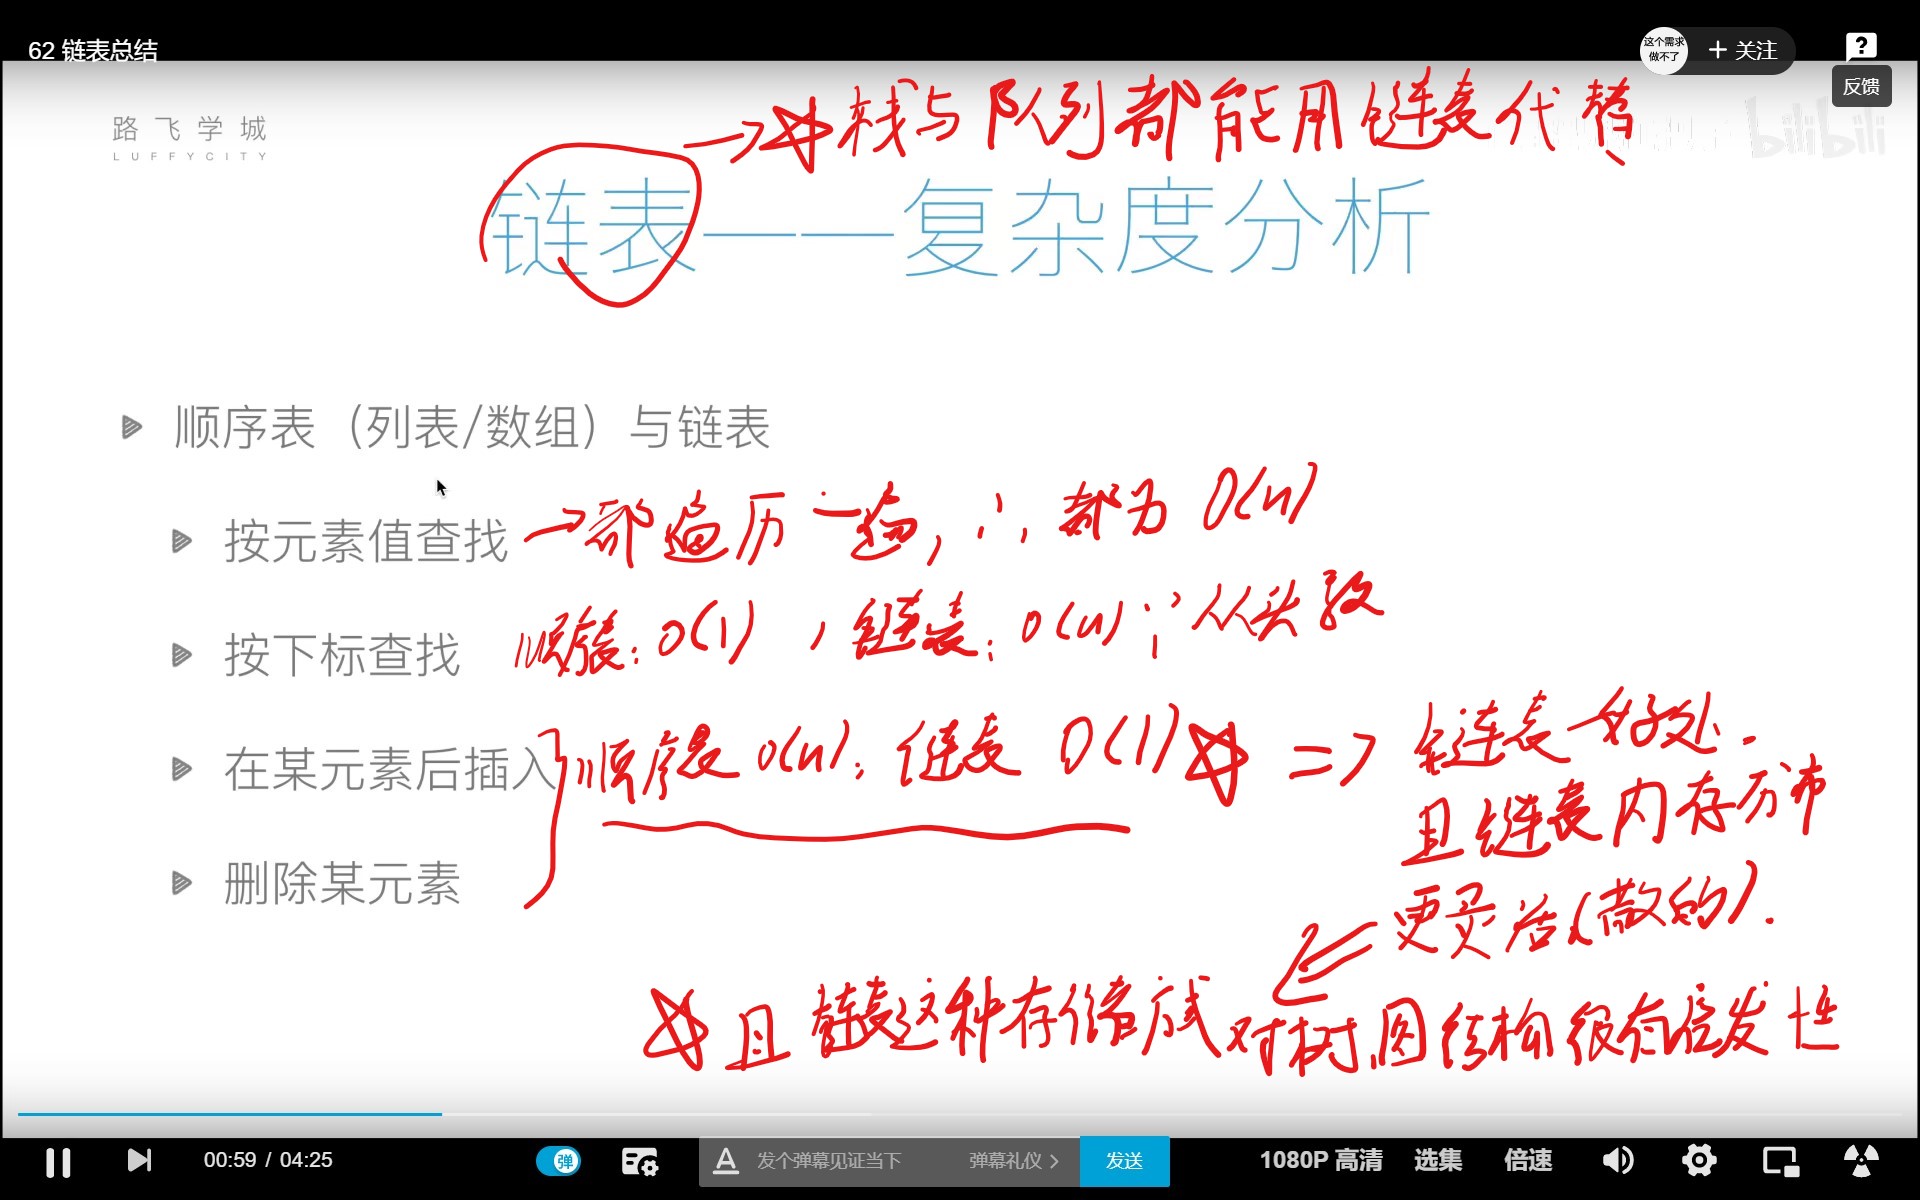 62 链表总结
这个需求
做不了
+ 关注
反馈
路飞学城
LUFFYCITY
bilibili
→☆栈与队列都能用链表代替
链表——复杂度分析
顺序表（列表/数组）与链表
按元素值查找 →都遍历一遍，∴都为 O(n)
按下标查找 顺序表：O(1)，链表：O(n)∵从头数
在某元素后插入 顺序表 O(n)；链表 O(1)☆ => 链表好处.
且链表内存分布
删除某元素
更灵活(散的).
☆且链表这种存储方式对树、图结构很有启发性
00:59 / 04:25
弹
发个弹幕见证当下
弹幕礼仪 >
发送
1080P 高清
选集
倍速